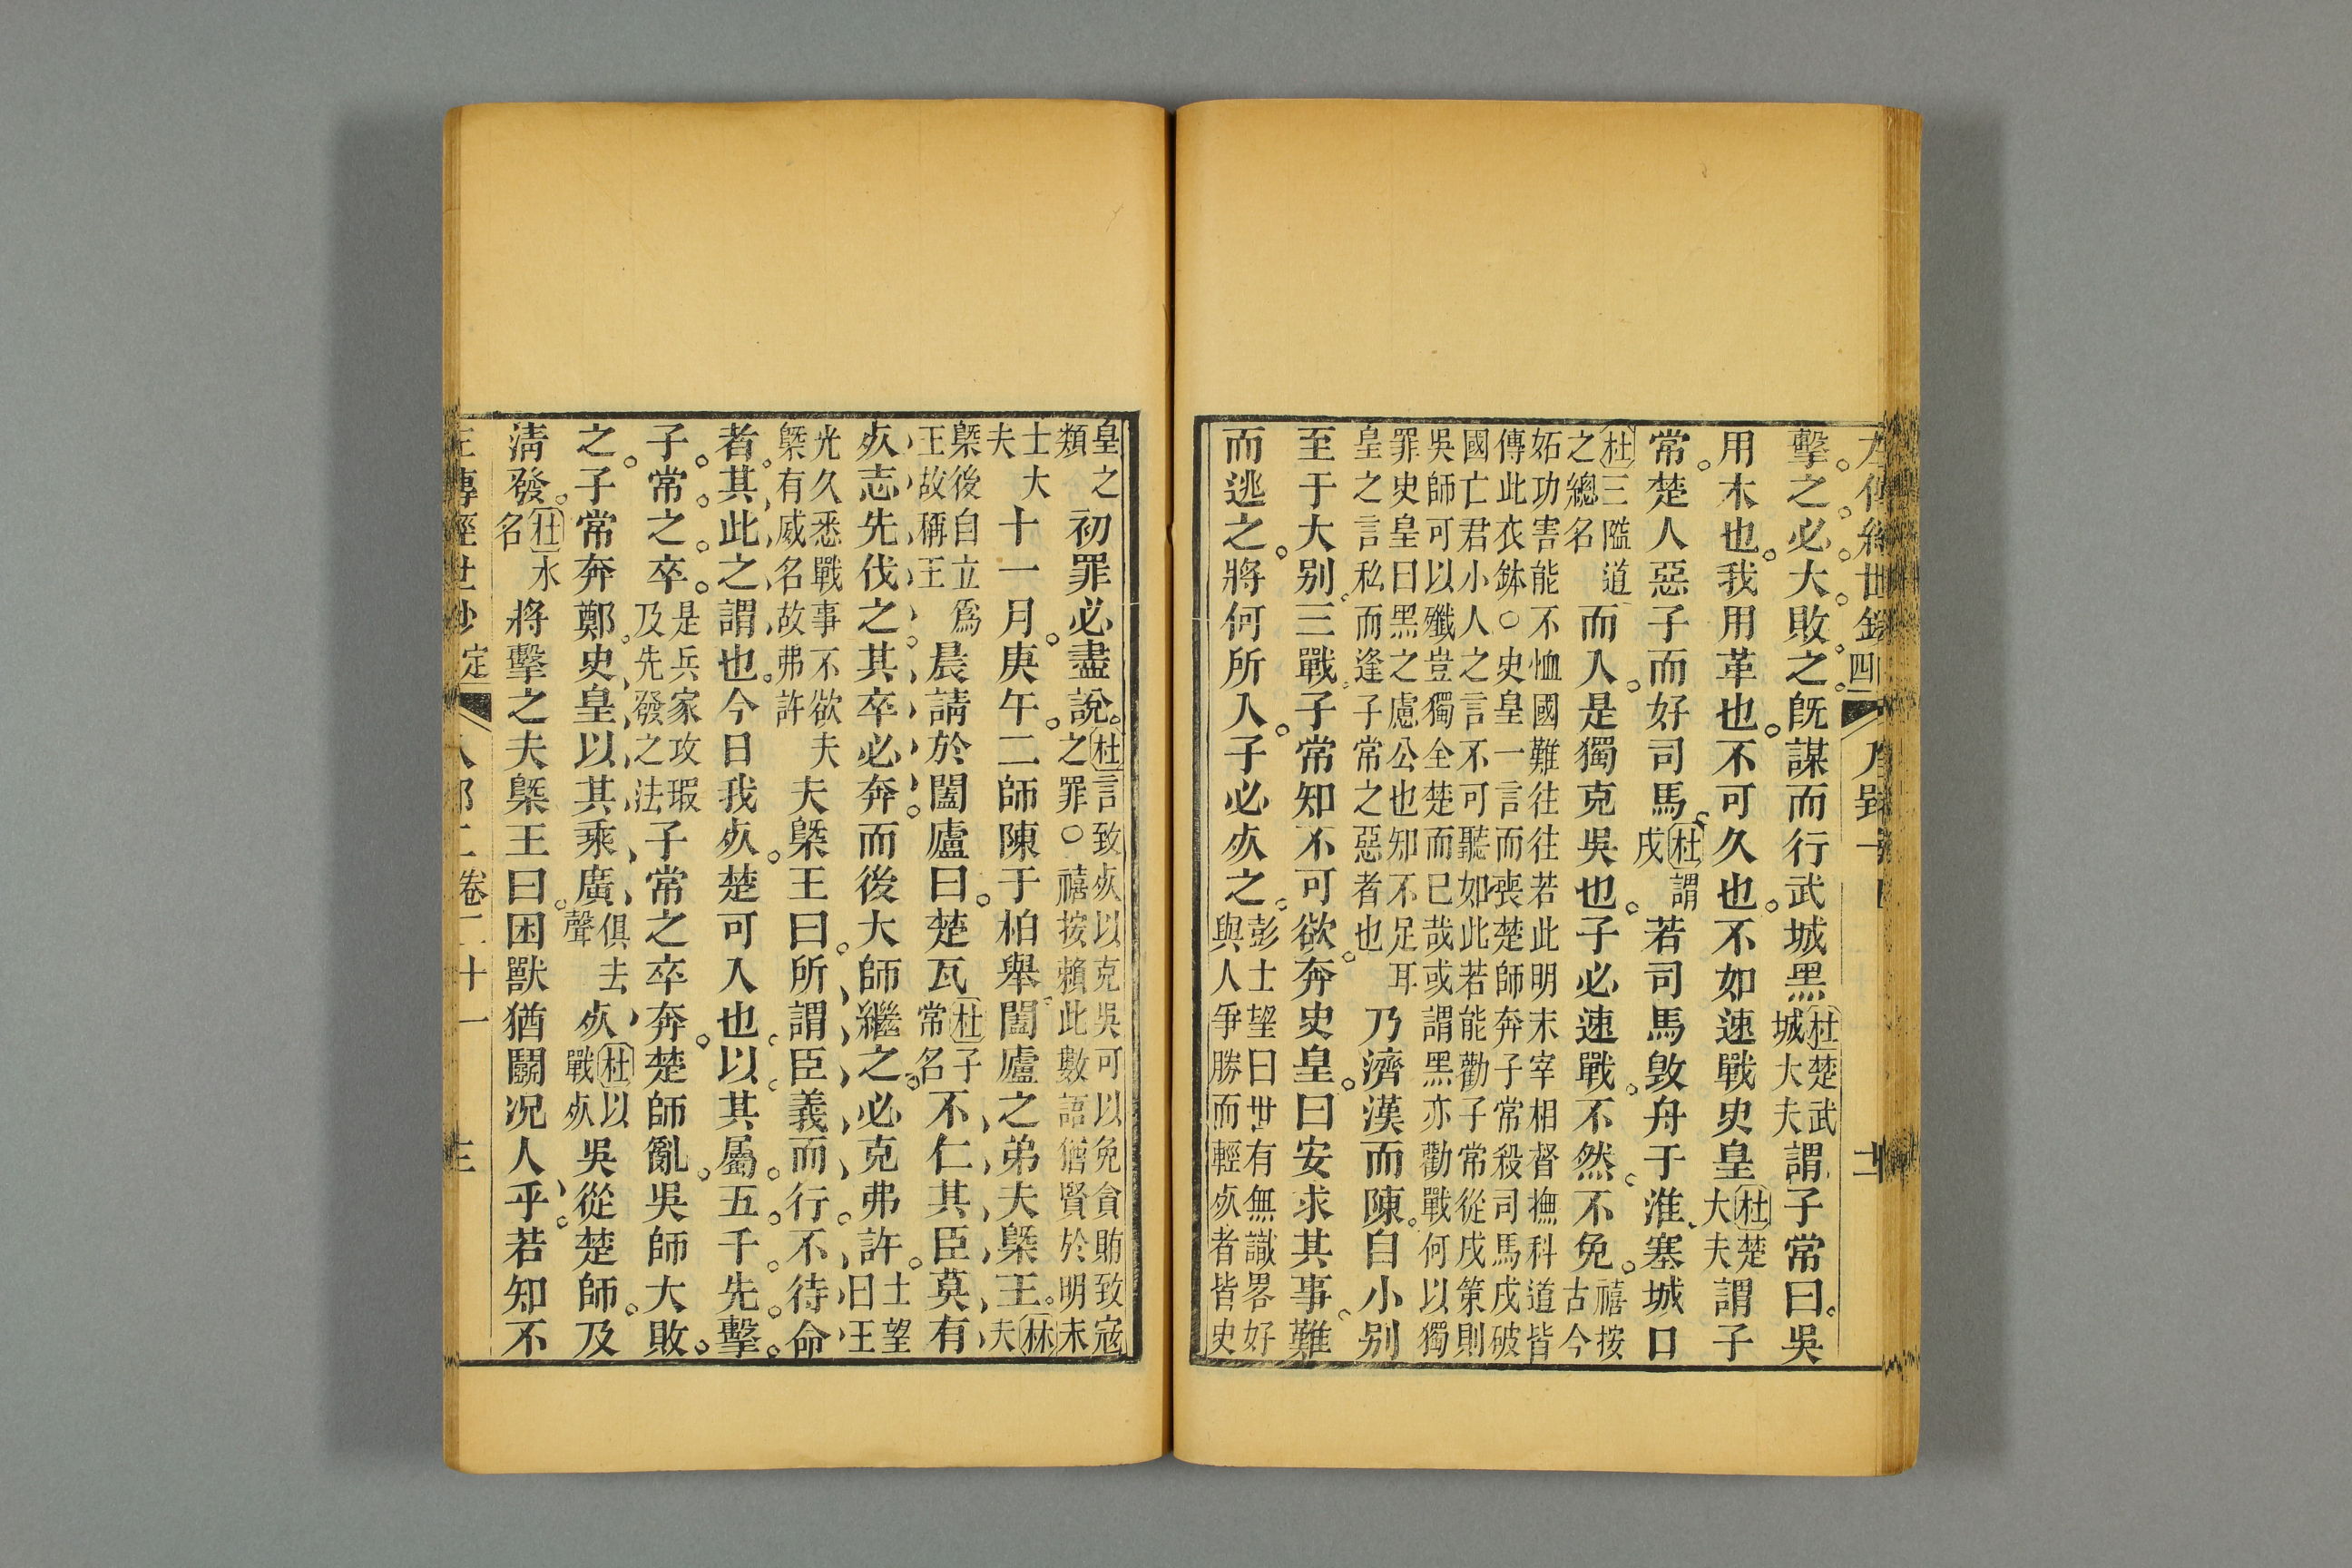 擊之必大敗之既謀而行武城黑杜楚武城大夫謂子常曰吳
用木也我用革也不可久也不如速戰史皇杜楚大夫謂子
常楚人惡子而好司馬杜謂戌若司馬毀舟于淮塞城口
杜三隘道之總名而入是獨克吳也子必速戰不然不免禧按古今
妬功害能不恤國難往往若此明末宰相督撫科道皆
傳此衣鉢○史皇一言而喪楚師奔子常殺司馬戌破
國亡君小人之言不可聽如此若能勸子常從戌策則
吳師可以殲豈獨全楚而已哉或謂黑亦勸戰何以獨
罪史皇曰黑之慮公也知不足耳皇之言私而逢子常之惡者也乃濟漢而陳自小别
至于大别三戰子常知不可欲奔史皇曰安求其事難
而逃之將何所入子必死之彭士望曰世有無識畧好與人爭勝而輕死者皆史
皇之類初罪必盡說杜言致死以克吳可以免貪賄致寇之罪○禧按賴此數語猶賢於明末
士大夫十一月庚午二師陳于柏舉闔廬之弟夫㮣王林夫
㮣後自立爲王故稱王晨請於闔廬曰楚瓦杜子常名不仁其臣莫有
死志先伐之其卒必奔而後大師繼之必克弗許士望曰王
光久悉戰事不欲夫㮣有威名故弗許夫㮣王曰所謂臣義而行不待命
者其此之謂也今日我死楚可入也以其屬五千先擊
子常之卒是兵家攻瑕及先發之法子常之卒奔楚師亂吳師大敗
之子常奔鄭史皇以其乘廣俱去聲死杜以戰死吳從楚師及
清發杜水名將擊之夫㮣王曰困獸猶鬬况人乎若知不
左傳經世鈔 定 入郢二卷二十一 三